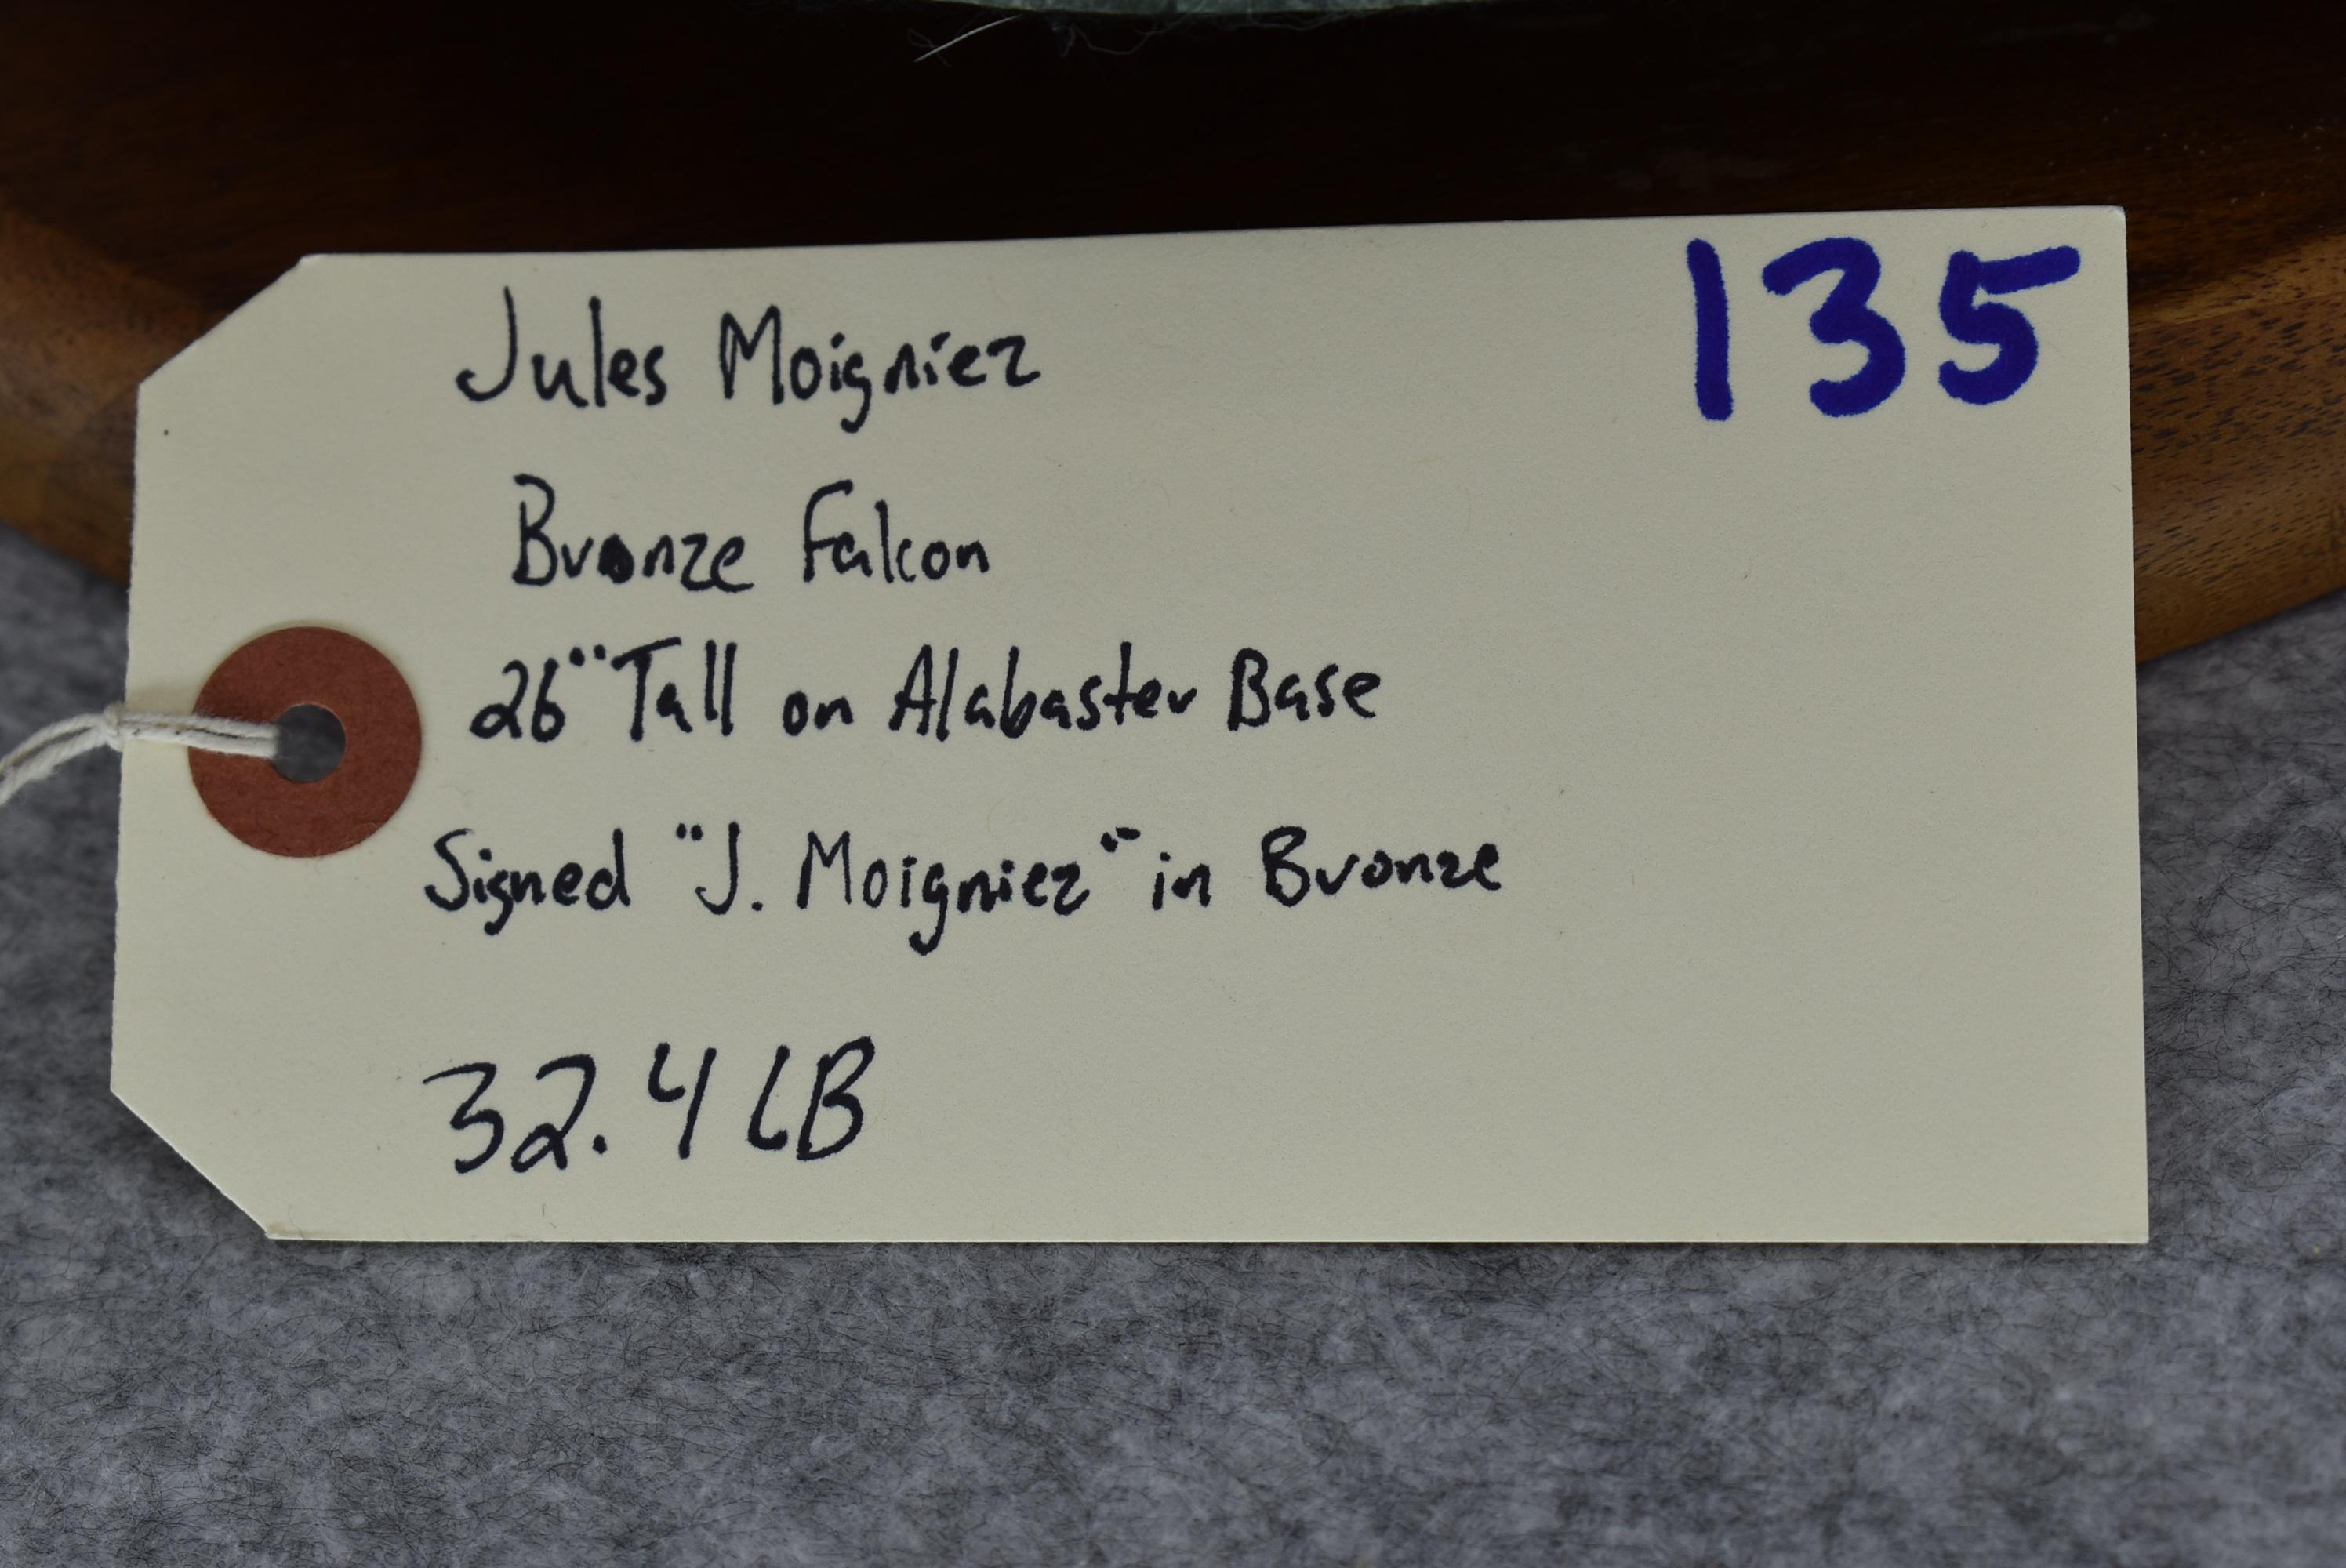 135
Jules Moigniez
Bronze Falcon
26" Tall on Alabaster Base
Signed "J. Moigniez" in Bronze
32.4 LB